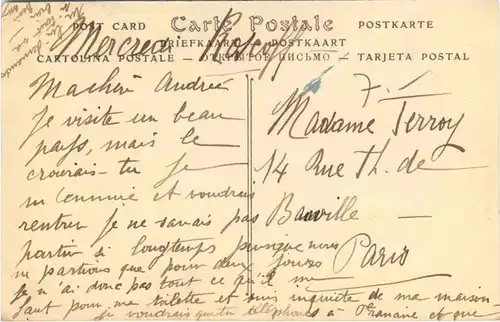 POST CARD Carte Postale POSTKARTE
BRIEFKAART POSTKAART
CARTOLINA POSTALE — ОТКРЫТОЕ ПИСЬМО — TARJETA POSTAL
Mercredi Roscoff
Ma chérie Andrée
Je visite un beau
pays, mais le
croirais-tu je
m'ennuie et voudrais
rentrer je ne savais pas
partir si longtemps puisque nous
ne partions que pour deux jours
je n'ai donc pas tout ce qu'il me
faut pour me toilette et suis inquiète de ma maison
je voudrais que tu téléphones à et que
7.
Madame Terroy
14 Rue Th. de
Banville —
Paris